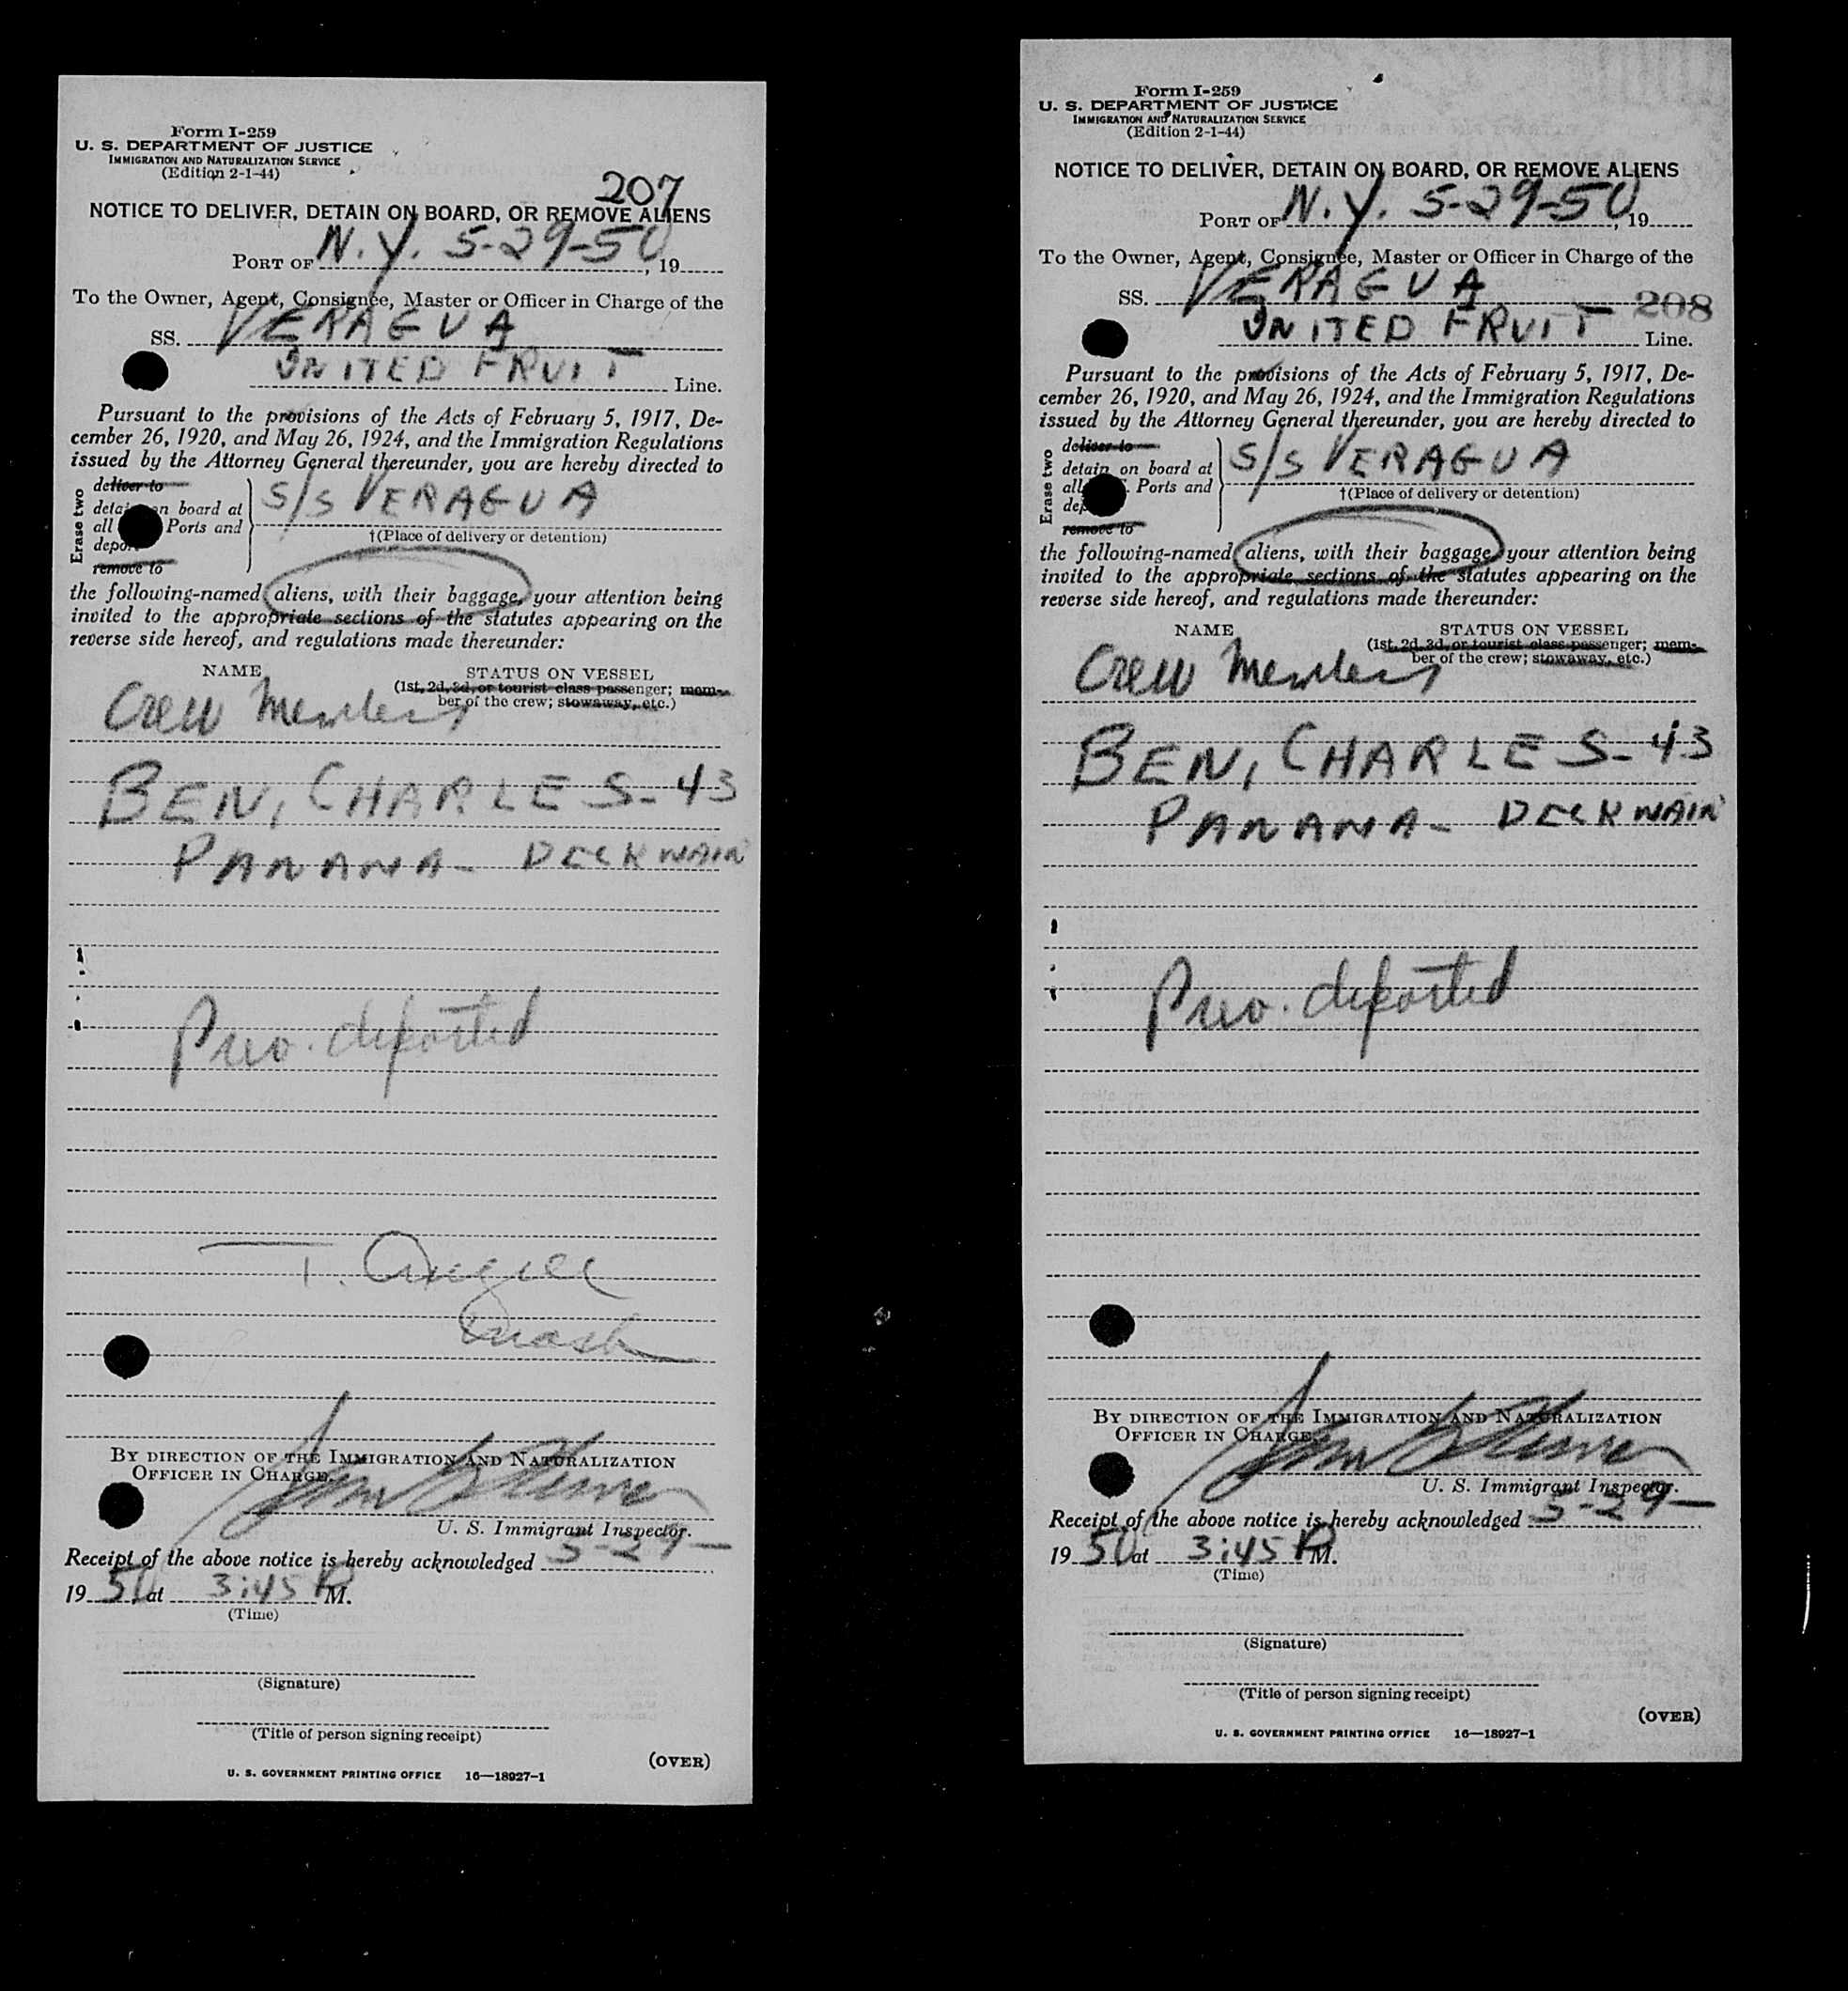 Form I-259
U. S. DEPARTMENT OF JUSTICE
IMMIGRATION AND NATURALIZATION SERVICE
(Edition 2-1-44)
207
NOTICE TO DELIVER, DETAIN ON BOARD, OR REMOVE ALIENS
PORT OF N.Y. 5-29-50, 19
To the Owner, Agent, Consignee, Master or Officer in Charge of the
SS. VERAGUA
UNITED FRUIT Line.
Pursuant to the provisions of the Acts of February 5, 1917, De-
cember 26, 1920, and May 26, 1924, and the Immigration Regulations
issued by the Attorney General thereunder, you are hereby directed to
Erase two
deliver to
detain on board at
all Ports and
deport
remove to
S/S VERAGUA
†(Place of delivery or detention)
the following-named aliens, with their baggage, your attention being
invited to the appropriate sections of the statutes appearing on the
reverse side hereof, and regulations made thereunder:
NAME STATUS ON VESSEL
(1st, 2d, 3d, or tourist class passenger; mem-
ber of the crew; stowaway, etc.)
Crew Members
BEN, CHARLES-43
PANAMA- DECK
Prev. deported
T.
By DIRECTION OF THE IMMIGRATION AND NATURALIZATION
OFFICER IN CHARGE.
U. S. Immigrant Inspector.
Receipt of the above notice is hereby acknowledged 5-29-
1950, at 3:45 P M.
(Time)
(Signature)
(Title of person signing receipt)
(OVER)
U. S. GOVERNMENT PRINTING OFFICE 16—18927-1
Form I-259
U. S. DEPARTMENT OF JUSTICE
IMMIGRATION AND NATURALIZATION SERVICE
(Edition 2-1-44)
NOTICE TO DELIVER, DETAIN ON BOARD, OR REMOVE ALIENS
PORT OF N.Y. 5-29-50, 19
To the Owner, Agent, Consignee, Master or Officer in Charge of the
SS. VERAGUA 208
UNITED FRUIT Line.
Pursuant to the provisions of the Acts of February 5, 1917, De-
cember 26, 1920, and May 26, 1924, and the Immigration Regulations
issued by the Attorney General thereunder, you are hereby directed to
Erase two
deliver to
detain on board at
all Ports and
dep
remove to
S/S VERAGUA
†(Place of delivery or detention)
the following-named aliens, with their baggage, your attention being
invited to the appropriate sections of the statutes appearing on the
reverse side hereof, and regulations made thereunder:
NAME STATUS ON VESSEL
(1st, 2d, 3d, or tourist class passenger; mem-
ber of the crew; stowaway, etc.)
Crew Members
BEN, CHARLES-43
PANAMA- DECK
Prev. deported
By DIRECTION OF THE IMMIGRATION AND NATURALIZATION
OFFICER IN CHARGE.
U. S. Immigrant Inspector.
Receipt of the above notice is hereby acknowledged 5-29-
1950 at 3:45 P M.
(Time)
(Signature)
(Title of person signing receipt)
(OVER)
U. S. GOVERNMENT PRINTING OFFICE 16—18927-1